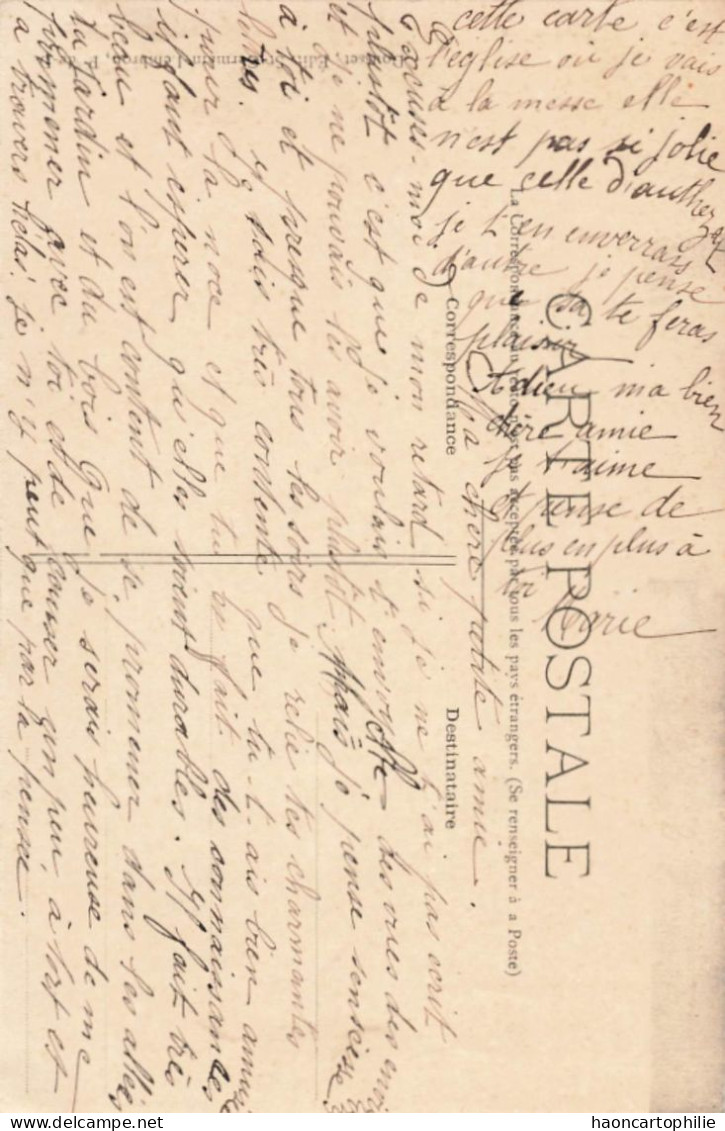 CARTE POSTALE
La Correspondance au recto n'est pas acceptée par tous les pays étrangers. (Se renseigner à a Poste)
Correspondance
Destinataire
Ma chère petite amie.
Excuses-moi de mon retard si je ne t'ai pas écrit
plustôt c'est que je voulais t'envoyer des vues des
et je ne pouvais les avoir plustôt. Mais je pense
à toi et presque tous les soirs je relie tes charmantes
lettres. Je suis très contente que tu t'ais bien amusé
pour la noce et que tu as fait des connaissances
il faut espérer qu'elles soient durables. Il fait très
beau et l'on est content de se promener dans les allées
du Jardin et du bois que je serais heureuse de me
promener avec toi et de causer un peu, à tort et
à travers hélas! je n'y peut que par la pensée.
cette carte c'est
l'église où je vais
à la messe elle
n'est pas si jolie
que celle d'authezat
je t'en enverrais
d'autre je pense
que sa te feras
plaisir
Adieu ma bien
chère amie
je t'aime
et pense de
plus en plus à
toi Marie
haoncartophilie